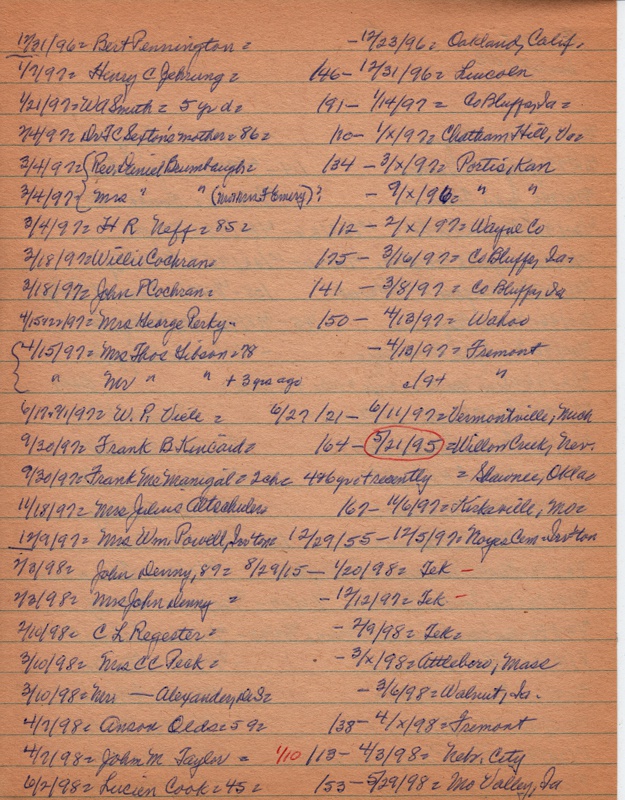 12/31/96= Bert Pennington= -12/23/96= Oakland, Calif.
1/7/97= Henry C Jehrung= /46- 12/31/96= Lincoln
1/21/97= WA Smith= 5 yr d= /91- 1/14/97= Co Bluffs, Ia=
2/4/97= Dr FC Sexton's mother= 86= /10- 1/x/97= Chatham Hill, Va=
3/4/97= { Rev. Daniel Brumbaugh= /34- 3/x/97= Portis, Kan
3/4/97= { Mrs " " ( Emery)? - 9/x/96= " "
3/4/97= H R Neff= 85= /12- 2/x/97= Wayne Co
3/18/97= Willie Cochran= /75- 3/16/97= Co Bluffs, Ia=
3/18/97= John P Cochran= /41- 3/8/97= Co Bluffs, Ia
4/15+22/97= Mrs George Perky= /50- 4/13/97= Wahoo
{ 4/15/97= Mrs Thos Gibson= 78 - 4/13/97= Fremont
{ " Mr " " + 3 yrs ago c/94 "
6/17 /97= W. P. Viele= 6/27/21- 6/11/97= Vermontville, Mich
9/30/97= Frank B Kincaid= /64- 5/21/95= Willow Creek, Nev.
9/30/97= Frank McManigal= 2 ch= 4+6 yr + recently = Shawnee, Okla=
11/18/97= Mrs Julius Altschuler= /67- 11/6/97= Kirksville, Mo=
12/9/97= Mrs Wm. Powell, Irv'ton= 12/29/55- 12/5/97= Noyes Cem= Irv'ton
2/3/98= John Denny, 82= 8/29/15- 1/20/98= Tek -
2/3/98= Mrs John Denny = - 12/12/97= Tek -
2/10/98= C L Regester= - 2/9/98= Tek=
3/10/98= Mrs CC Peak= - 3/x/98= Attleboro, Mass
3/10/98= Mrs — Alexander, - 3/6/98= Walnut, Ia.
4/7/98= Anson Olds= 59= /38- 4/x/98= Fremont
4/7/98= John M. Taylor= 1/10 /13- 4/3/98= Neb. City
6/2/98= Lucien Cook= 45= /53- 5/29/98= Mo Valley, Ia